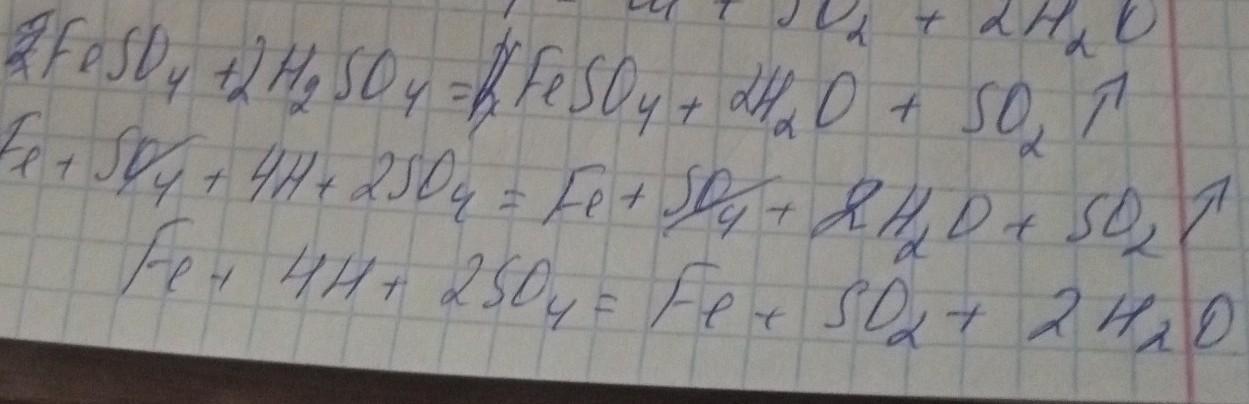 SO₂ + 2H₂O
2FeSO₄ + 2H₂SO₄ = FeSO₄ + 2H₂O + SO₂ ↑
Fe + SO₄ + 4H + 2SO₄ = Fe + SO₄ + 2H₂O + SO₂ ↑
Fe + 4H + 2SO₄ = Fe + SO₂ + 2H₂O